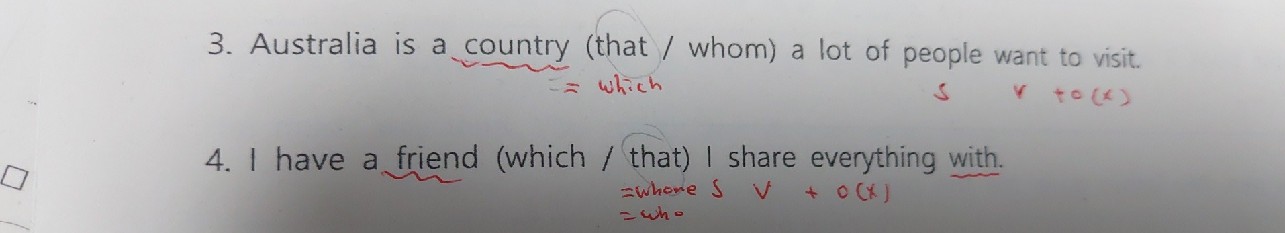 3. Australia is a country (that / whom) a lot of people want to visit.
= which S V + o (x)
4. I have a friend (which / that) I share everything with.
= whome S V + o (x)
= who